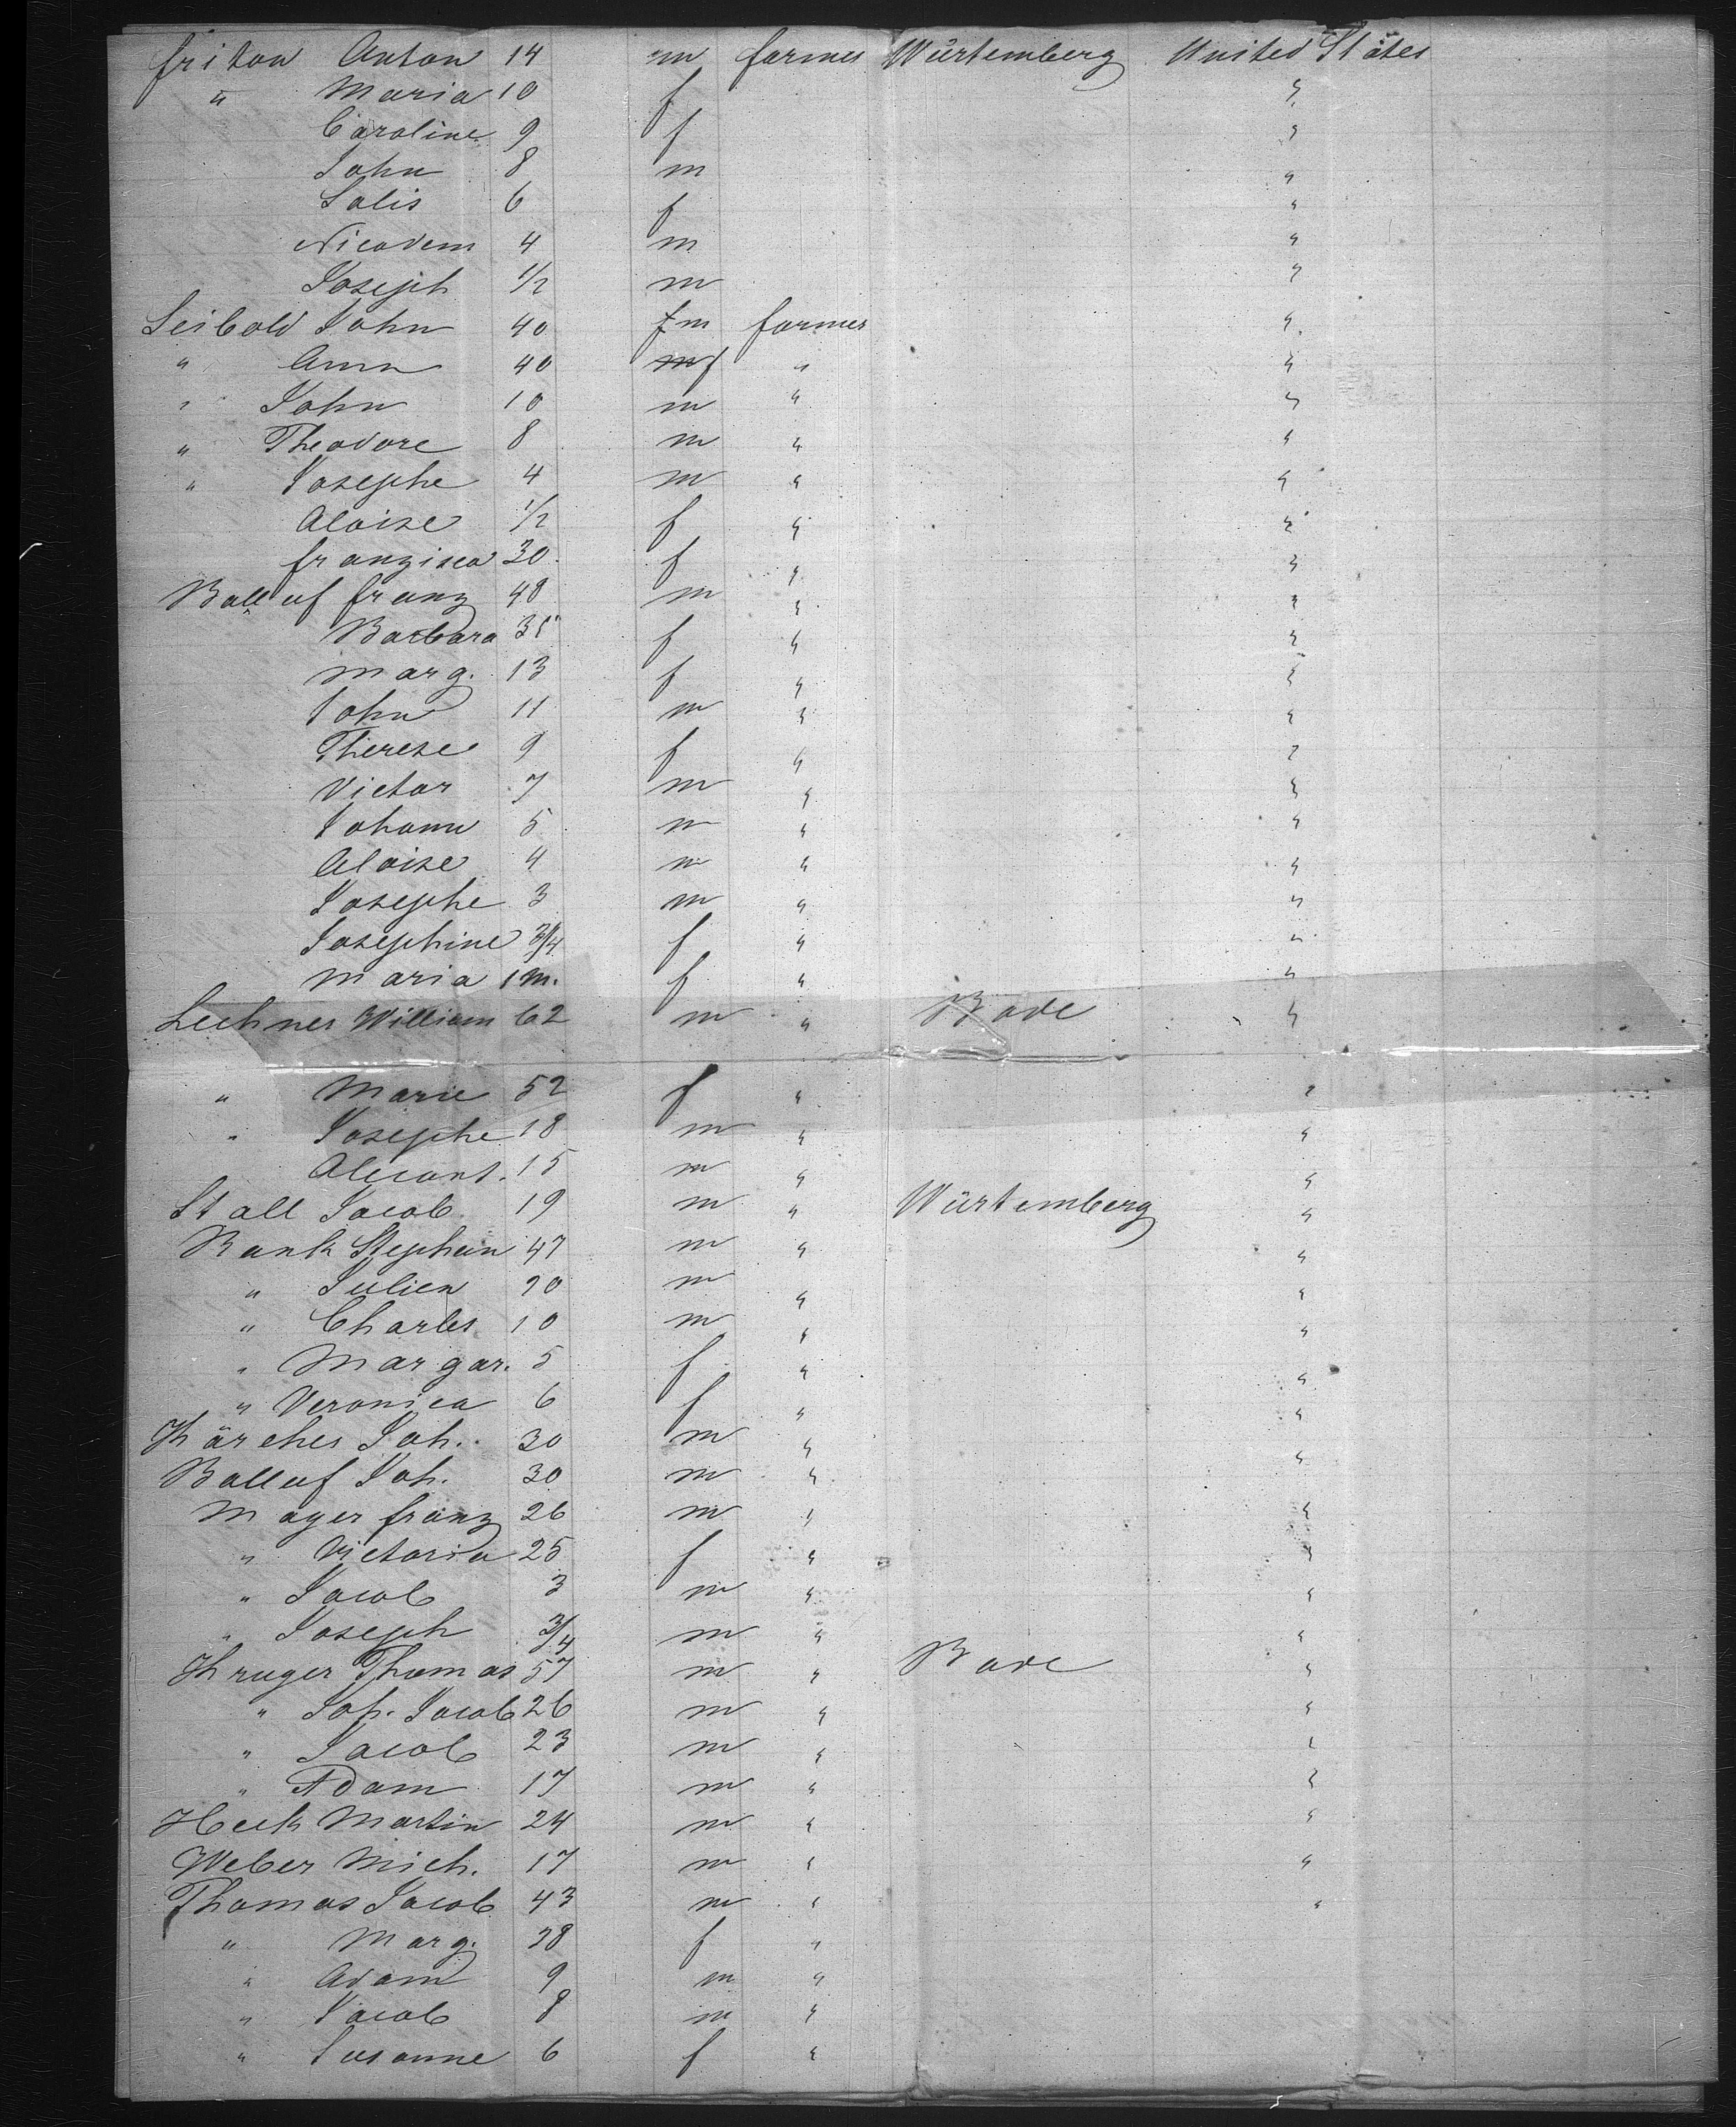 Fridon Anton 14 m farmer Würtemberg United States
" Maria 10 f "
Caroline 9 f "
John 8 m "
Salis 6 f "
Nicodem 4 m "
Joseph 1/2 m "
Seibold John 40 m farmer "
" Ann 40 f " "
" John 10 m " "
" Theodore 8 m " "
" Josephe 4 m " "
Aloise 1/2 f " "
Franzisca 30 f " "
Balluf Franz 48 m " "
Barbara 38 f " "
Marg. 13 f " "
John 11 m " "
Therese 9 f " "
Victor 7 m " "
Johann 5 m " "
Aloise 4 m " "
Josephe 3 m " "
Josephine 3/4 f " "
Maria 1 m. f " "
Lechner William 62 m " Bade "
" Marie 52 f " "
" Josephe 18 m " "
15 m " "
Stall Jacob 19 m " Würtemberg "
Rank Stephan 47 m " "
" Julien 20 m " "
" Charles 10 m " "
" Margar. 5 f " "
" Veronica 6 f " "
Kärcher Joh. 30 m " "
Balluf Joh. 30 m " "
Mayer Franz 26 m " "
" Victoria 25 f " "
" Jacob 3 m " "
" Joseph 3/4 m " "
Kruger Thomas 57 m " Bade "
" Joh. Jacob 26 m " "
" Jacob 23 m " "
" Adam 17 m " "
Heck Martin 24 m " "
Weber Mich. 17 m " "
Thomas Jacob 43 m " "
" Marg. 38 f "
" Adam 9 m "
" Jacob 8 m "
" Susanne 6 f "